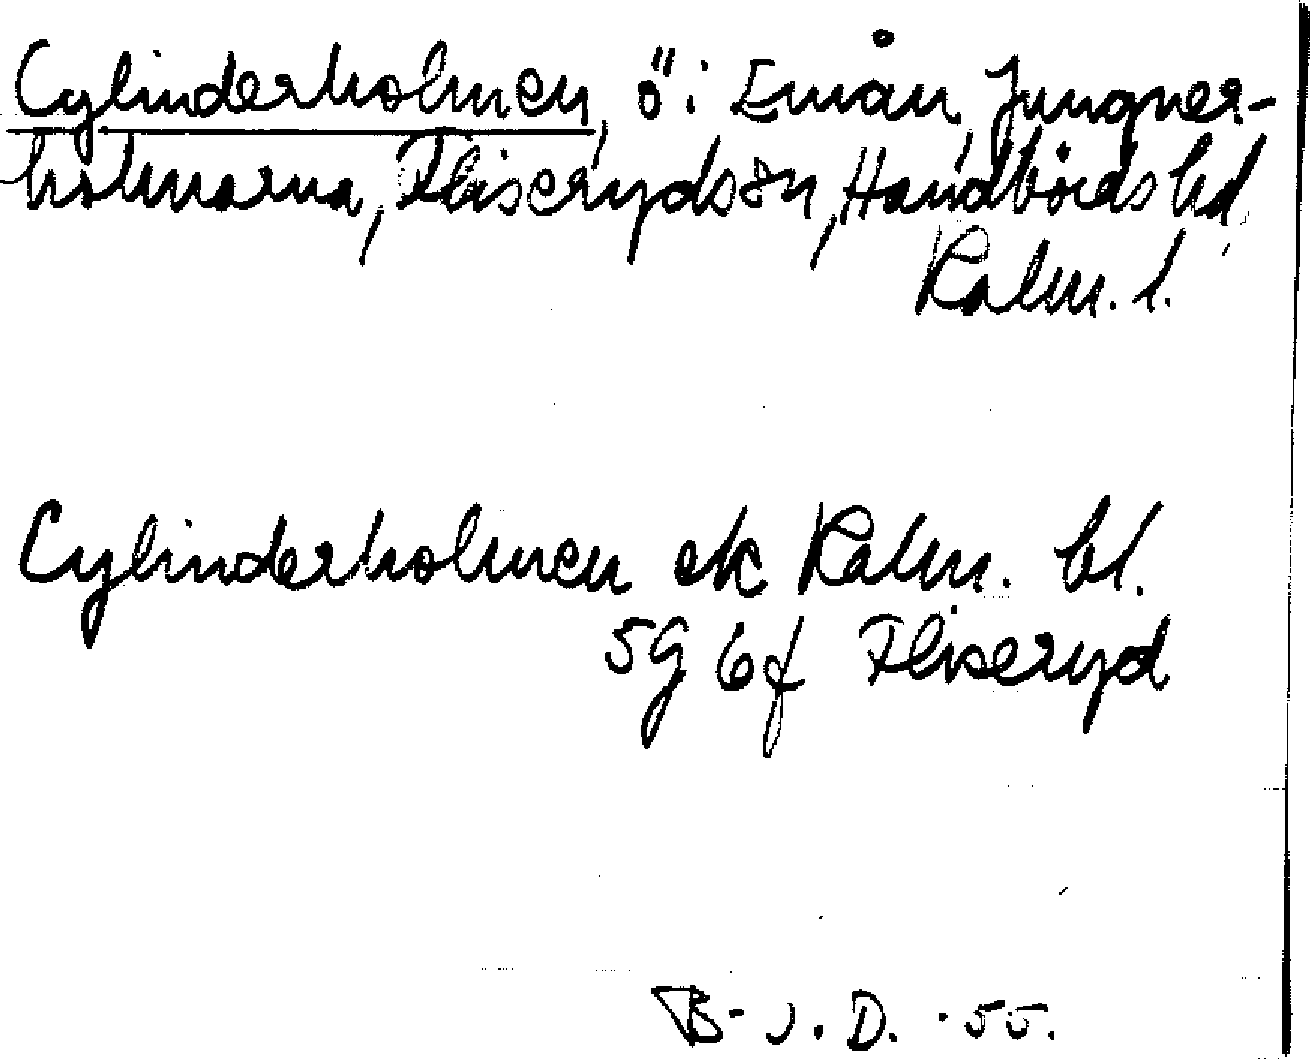 Cylinderholmen, ö i Emån, Jungner-
holmarna, Fliserydssn, Handbörds hd,
Kalm. l.
Cylinderholmen ek Kalm. bl.
5G 6f Fliseryd
B-J.D. -55.